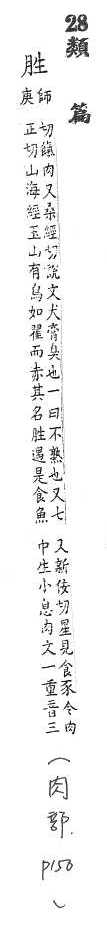 28
類篇
胜
師
庚
切餼肉又桑經切說文犬膏臭也一曰不熟也又七
正切山海經玉山有鳥如翟而赤其名胜遇是食魚
又新佞切星見食豕令肉
中生小息肉文一重音三
(肉部. P150)